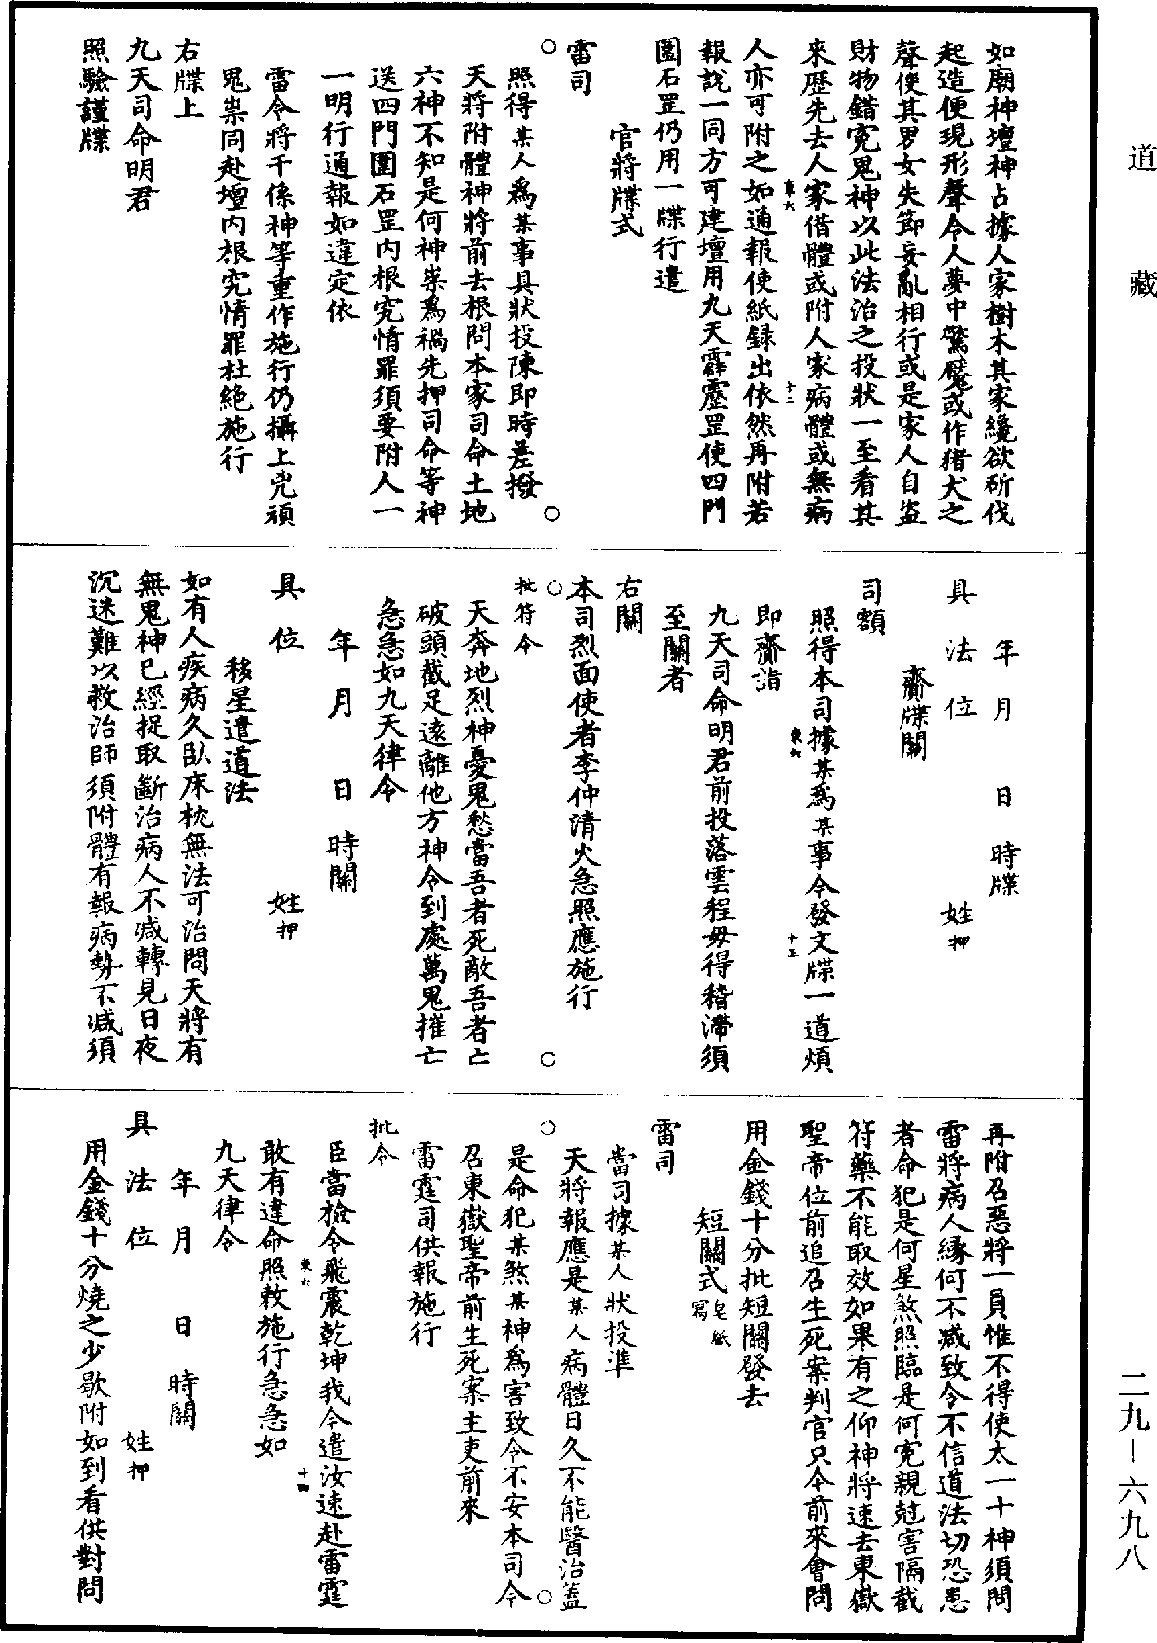 道藏
如廟神壇神占據人家樹木其家纔欲斫伐
起造便現形聲令人夢中驚魘或作猪犬之
聲使其男女失節妄亂相行或是家人自盜
財物錯寃鬼神以此法治之投狀一至看其
來歷先去人家借體或附人家病體或無病
人亦可附之如通報使紙録出依然再附若
報說一同方可建壇用九天霹靂罡使四門
圍石罡仍用一牒行遣
官將牒式
雷司
照得某人爲某事具狀投陳即時差撥
天將附體神將前去根問本家司命土地
六神不知是何神祟爲禍先押司命等神
送四門圍石罡内根究情罪須要附人一
一明行通報如違定依
雷令將干係神等重作施行仍攝上兇頑
鬼祟同赴壇内根究情罪杜絶施行
右牒上
九天司命明君
照驗謹牒
年月日時牒
具法位姓押
齎牒關
司額
照得本司據某爲某事令發文牒一道煩
即齎詣
九天司命明君前投落雲程毋得稽滯須
至關者
右關
本司烈面使者李仲清火急照應施行
批符令
天奔地烈神憂鬼愁當吾者死敵吾者亡
破頭截足遠離他方神令到處萬鬼摧亡
急急如九天律令
年月日時關
具位姓押
移星遣道法
如有人疾病久臥床枕無法可治問天將有
無鬼神已經捉取斷治病人不减轉見日夜
沉迷難以救治師須附體有報病勢不减須
再附召惡將一員惟不得使太一十神須問
雷將病人緣何不减致令不信道法切恐患
者命犯是何星煞照臨是何寃親尅害隔截
符藥不能取效如果有之仰神將速去東嶽
聖帝位前追召生死案判官只今前來會問
用金錢十分批短關發去
短關式皂紙寫
雷司
當司據某人狀投準
天將報應是某人病體日久不能醫治蓋
是命犯某煞某神爲害致令不安本司今
召東嶽聖帝前生死案主吏前來
雷霆司供報施行
批令
臣當檢令飛震乾坤我今遣汝速赴雷霆
敢有違命照敕施行急急如
九天律令
年月日時關
具法位姓押
用金錢十分燒之少歇附如到看供對問
二九—六九八